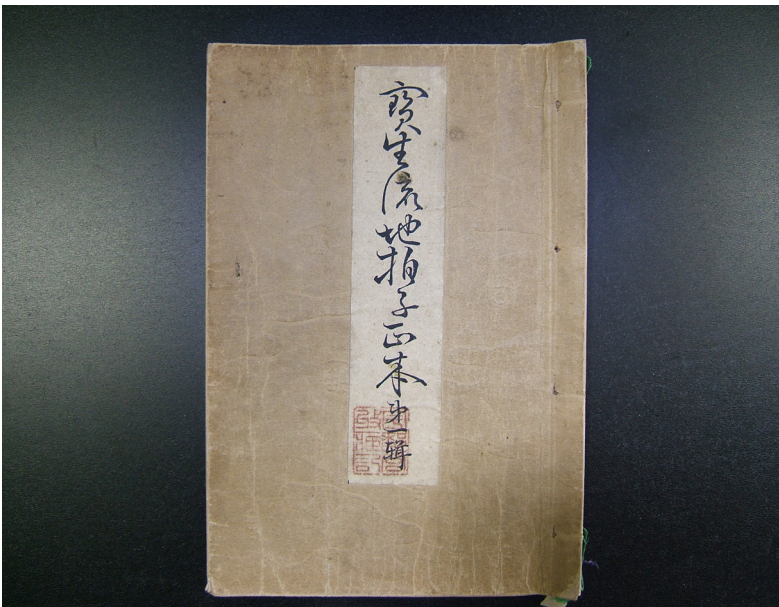 寶生流地拍子正本第一輯